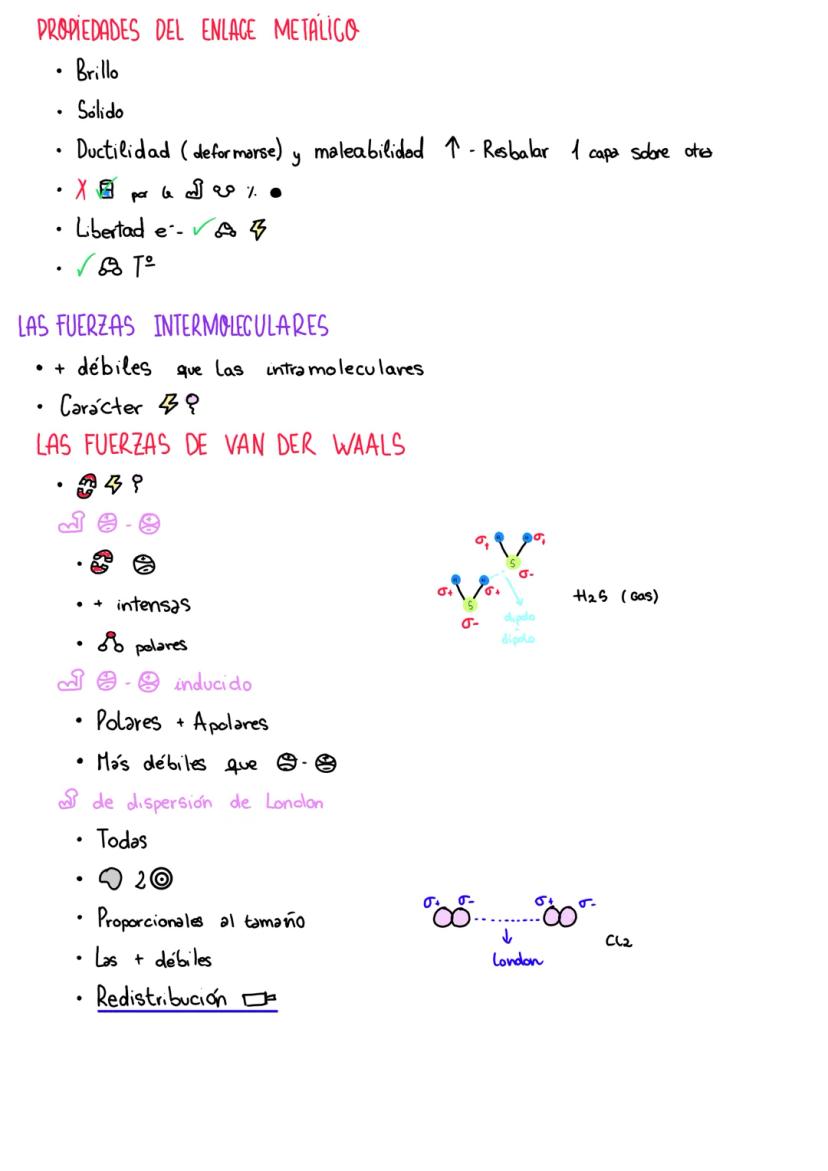 PROPIEDADES DEL ENLACE METÁLICO
• Brillo
• Sólido
• Ductilidad (deformarse) y maleabilidad ↑ - Resbalar 1 capa sobre otra
• X por la %
• Libertad e⁻ - ✓
• ✓ Tº
LAS FUERZAS INTERMOLECULARES
• + débiles que las intramoleculares
• Carácter
LAS FUERZAS DE VAN DER WAALS
-
• + intensas
• polares
- inducido
• Polares + Apolares
• Más débiles que -
de dispersión de London
• Todas
• 2
• Proporcionales al tamaño
• Las + débiles
• Redistribución
σ+ σ+
S
σ-
σ+ σ+
S
σ-
dipolo
dipolo
H2S (Gas)
σ+ σ- σ+ σ-
London
Cl2